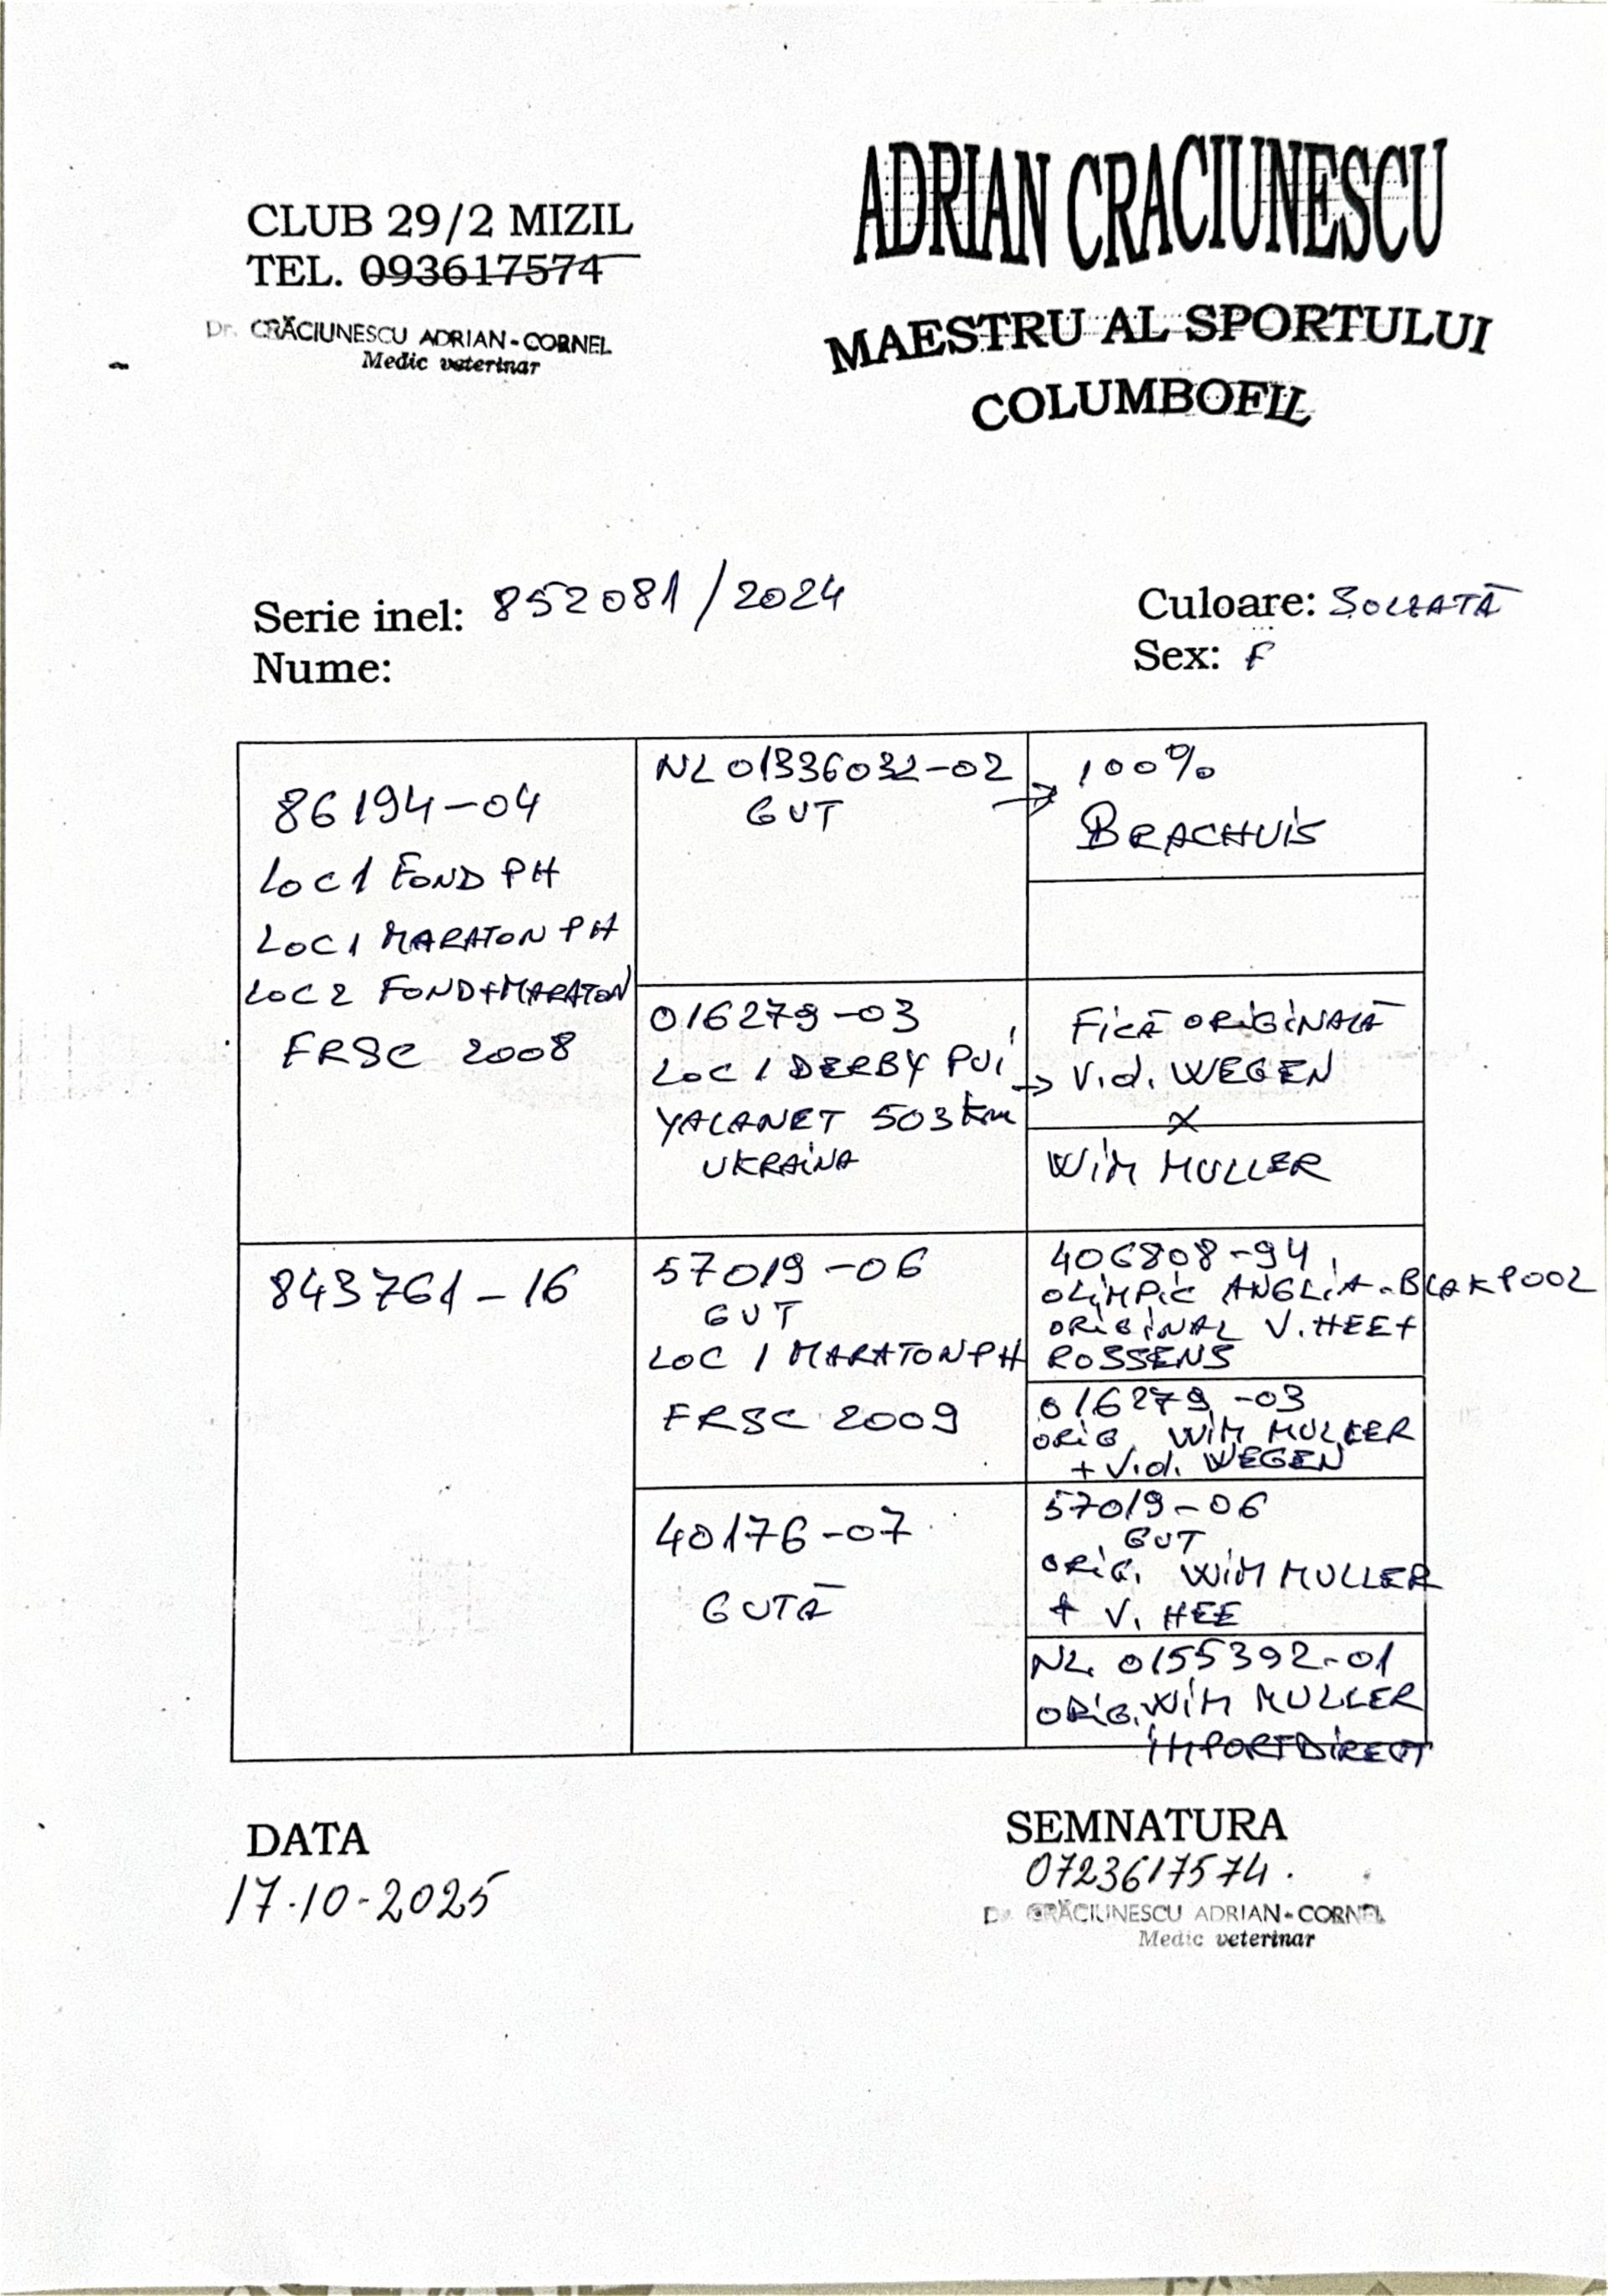 CLUB 29/2 MIZIL
TEL. 093617574
Dr. CRĂCIUNESCU ADRIAN-CORNEL
Medic veterinar
ADRIAN CRACIUNESCU
MAESTRU AL SPORTULUI
COLUMBOFIL
Serie inel: 852081/2024
Nume:
Culoare: SOLZATĂ
Sex: F
86194-04
LOC 1 FOND PH
LOC 1 MARATON PH
LOC 2 FOND+MARATON
FRSC 2008
NL 01336032-02
GUT
100%
BRACHUIS
016279-03
LOC 1 DERBY PUI
YALANET 503 km
UKRAINA
FICĂ ORIGINALĂ
V.d. WEGEN
X
WIM MULLER
843761-16
57019-06
GUT
LOC 1 MARATON PH
FRSC 2009
406808-94
OLIMPIC ANGLIA-BLAKPOOL
ORIGINAL V. HEE+
ROSSENS
016279-03
ORIG. WIM MULLER
+ V.d. WEGEN
40176-07
GUTĂ
57019-06
GUT
ORIG. WIM MULLER
+ V. HEE
NL. 0155392-01
ORIG. WIM MULLER
IMPORT DIRECT
DATA
17-10-2025
SEMNATURA
0723617574.
Dr. CRĂCIUNESCU ADRIAN-CORNEL
Medic veterinar